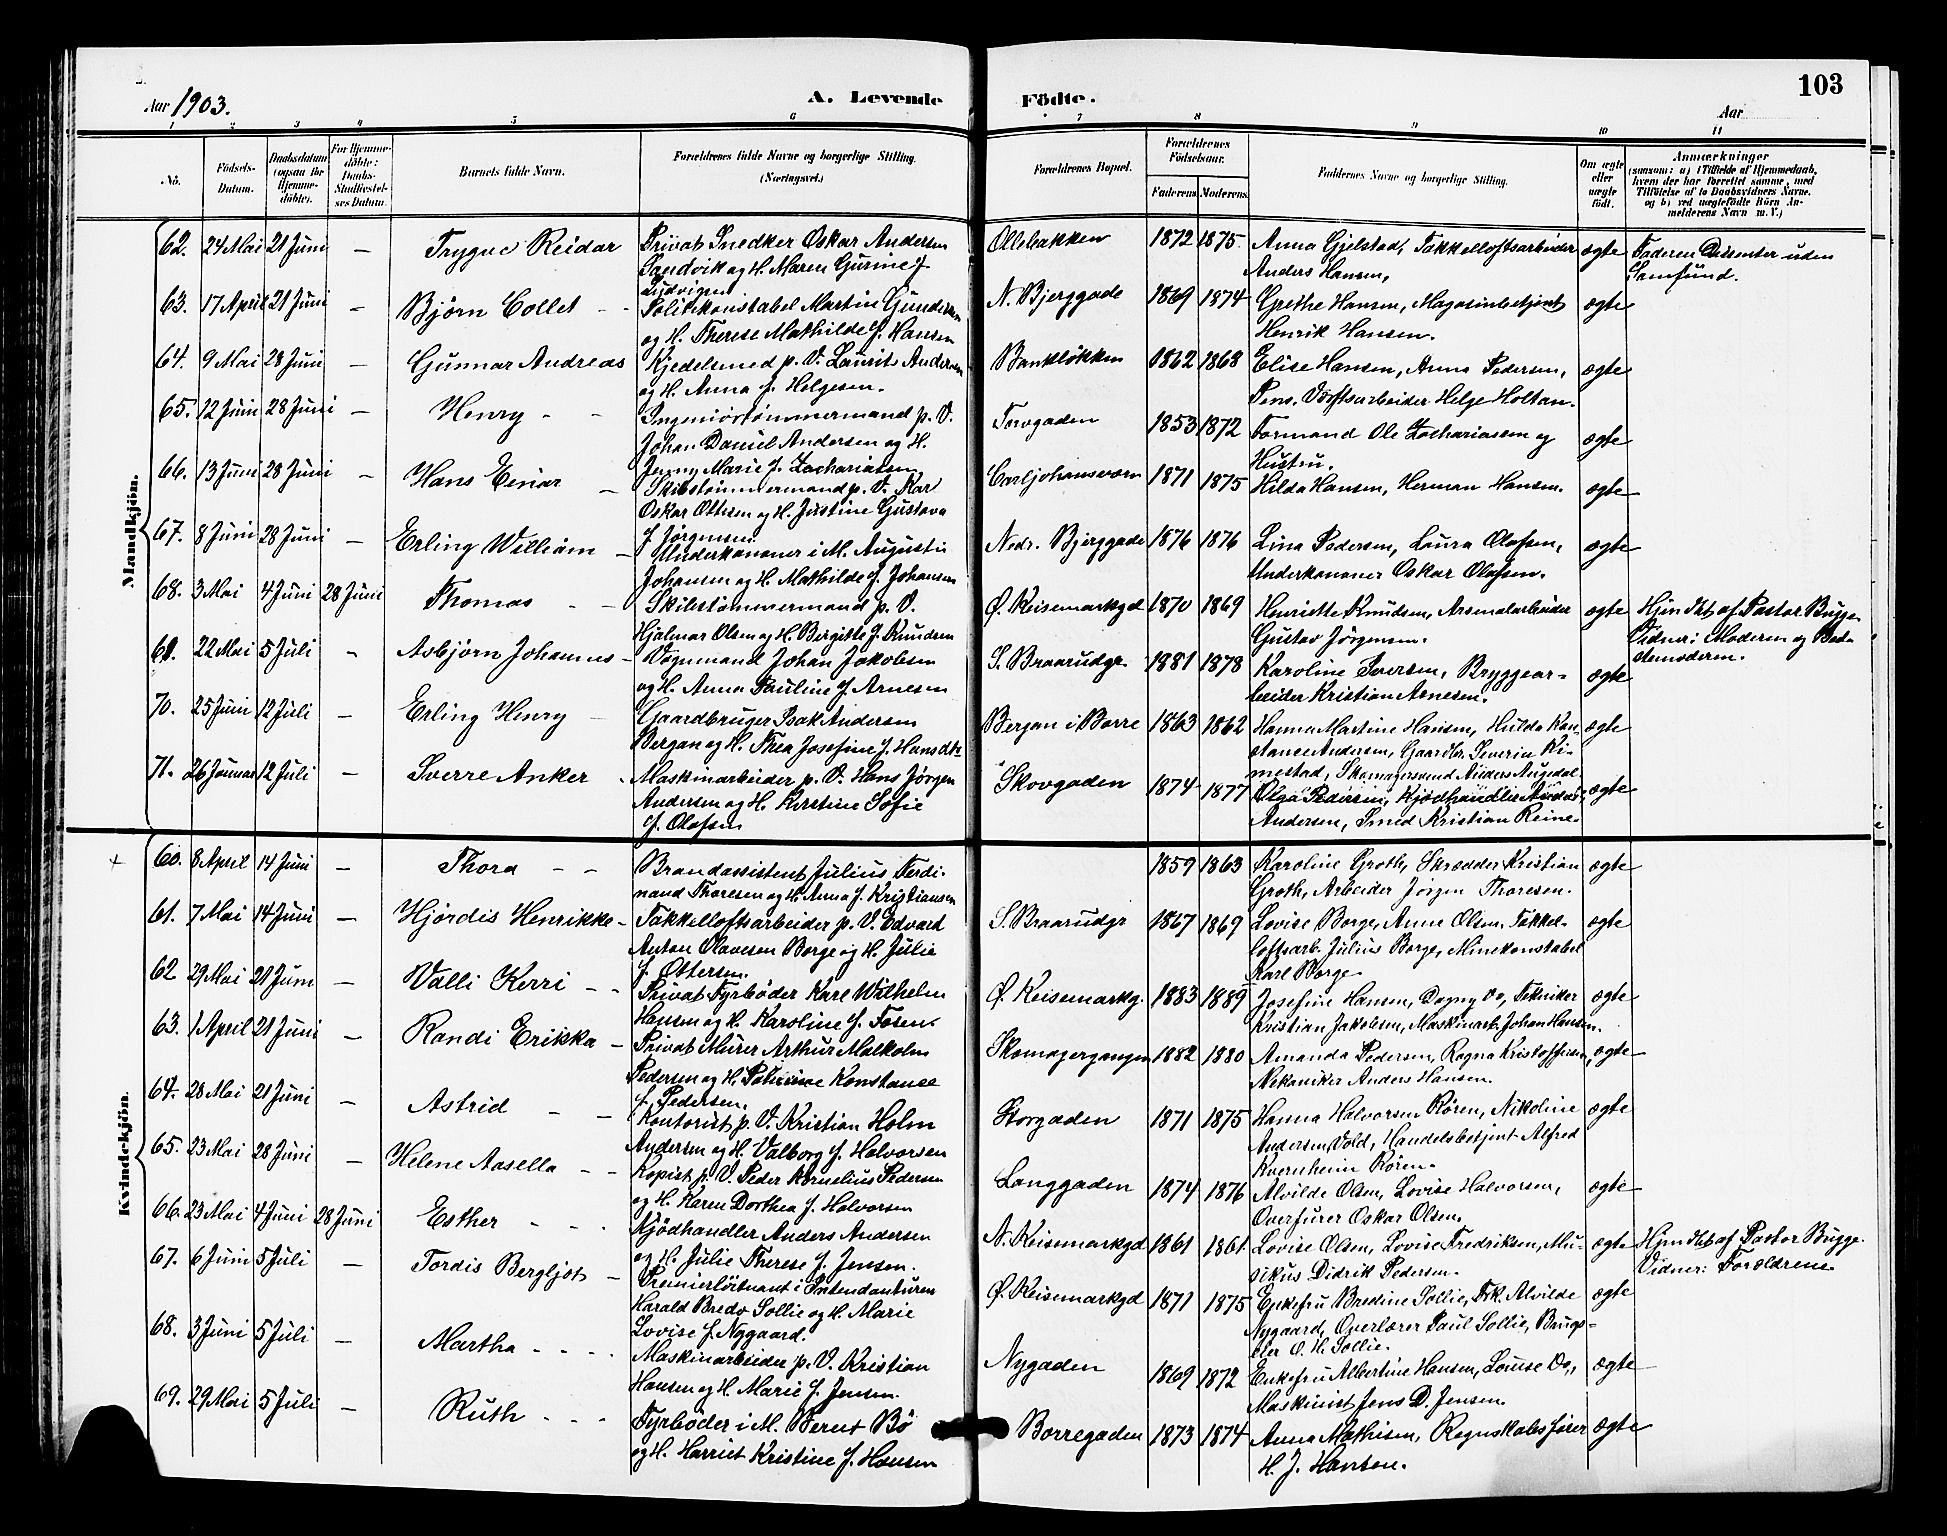 103
Aar 1903.
A. Levende Födte.
Aar
1 2 3 4 5 6 7 8 9 10 11
No.
Födsels-Datum.
Daabsdatum (ogsaa for Hjemmedöbte).
For Hjemmedöbte: Daabs-Stadfæstelses Datum.
Barnets fulde Navn.
Forældrenes fulde Navne og borgerlige Stilling. (Næringsvei.)
Forældrenes Bopæl.
Forældrenes Födselsaar.
Faderens Moderens
Faddernes Navne og borgerlige Stilling.
Om ægte eller uægte födt.
Anmærkninger
(saasom: a) i Tilfælde af Hjemmedaab,
hvem der har forrettet samme, med
Tilföielse af to Daabsvidners Navne.
og b) ved uægtefödte Börn Anmelderens Navn m. V.)
Mandkjön.
62. 24 Mai 21 Juni — Trygve Reidar
Privat Snedker Oskar Andersen
Sandvik og H. Maren Gurine f.
Ludvigsen
Ollebakken 1872 1875.
Anna Gjelstad, Takkelloftsarbeider
Anders Hansen,
ægte
Faderen Dissenter uden
Samfund.
63. 17 April 21 Juni — Bjørn Collet
Politikonstabel Martin Gundersen
og H. Therese Mathilde f. Hansen
N. Bjerggade 1869 1874
Grethe Hansen, Magasinbetjent
Henrik Hansen.
ægte
64. 9 Mai 28 Juni — Gunnar Andreas
Kjedelsmed p. V. Laurits Andersen
og H. Anna f. Helgesen.
Bankløkken 1862 1868
Elise Hansen, Anna Pedersen,
Pens. Værftsarbeider Helge Holtan.
ægte
65. 12 Juni 28 Juni — Henry
Ingeniørtømmermand p. V.
Johan Daniel Andersen og H.
Jenny Marie f. Zachariasen
Torvgaden 1853 1872
Formand Ole Zachariassen og
Hustru.
ægte
66. 13 Juni 28 Juni — Hans Einar
Skibstømmermand p. V. Kar
Oskar Ottesen og H. Justine Gustava
f. Jørgensen
Carljohansværn 1871 1875
Hilda Hansen, Herman Hansen.
ægte
67. 8 Juni 28 Juni — Erling William
Underkanoner i M. Augustin
Johansen og H. Mathilde f. Johansen
Nedr. Bjerggade 1876 1876
Lina Pedersen, Laura Olafsen,
Underkanoner Oskar Olafsen.
ægte
68. 3 Mai 4 Juni 28 Juni Thomas
Skibstømmermand p. V.
Hjalmar Olsen og H. Bergitte f. Knudsen
Ø. Keisemarkgd 1870 1869
Henriette Knudsen, Arsenalarbeider
Gustav Jørgensen.
ægte
Hjm dbt af Pastor Bugge.
Vidner: Moderen og Bed-
stemoderen.
69. 22 Mai 5 Juli Asbjørn Johannes
Vognmand Johan Jakobsen
og H. Anna Pauline f. Arnesen
S. Braarudgr. 1881 1878
Karoline Iversen, Bryggear-
beider Kristian Arnesen.
ægte
70. 25 Juni 12 Juli — Erling Henry
Gaardbruger Isak Andersen
Bergan og H. Thea Josefine f. Hansdtr
Bergan i Borre 1863 1862
Hanna Martine Hansen, Hulda Kon-
stance Andersen, Gaardbr. Severin Ki-
mestad, Skomagersvend Anders Augedal.
ægte
71. 26 Januar 12 Juli — Sverre Anker
Maskinarbeider p. V. Hans Jørgen
Andersen og H. Kristine Sofie
f. Olafsen
Skovgaden 1874 1877
Olga Pedersen, Kjødhandler Anders
Andersen, Smed Kristian Reine.
ægte
Kvindekjön.
60. 8 April 14 Juni — Thora
Brandassistent Julius Ferdi-
nand Thoresen og H. Anna f. Kristiansen
1859 1863
Karoline Groth, Skrædder Kristian
Groth, Arbeider Jørgen Thoresen.
ægte
61. 7 Mai 14 Juni — Hjørdis Henrikke
Takkelloftsarbeider p. V. Edvard
Anton Olavesen Borge og H. Julie
f. Ottersen.
S. Braarudgr 1867 1869
Lovise Borge, Anne Olsen, Takkel-
loftsarb. Julius Borge, Minekonstabel
Karl Borge
ægte
62 29 Mai 21 Juni — Valli Kerri
Privat Fyrbøder Karl Wilhelm
Hansen og H. Karoline f. Fosen
Ø. Keisemarkg. 1883 1889
Josefine Hansen, Dagny Do, Tekniker
Kristian Jakobsen, Maskinarb. Johan Hansen.
ægte
63. 1 April 21 Juni — Randi Erikka
Privat Murer Arthur Malkolm
Pedersen og H. Petrine Konstance
f. Pedersen.
Skomagergangen 1882 1880
Amanda Pedersen, Ragna Kristoffersen,
Mekaniker Anders Hansen.
ægte
64. 28 Mai 21 Juni — Astrid
Kontorist p. V. Kristian Holm
Andersen og H. Valborg f. Halvorsen
Storgaden 1871 1875
Hanna Halvorsen Røren, Nikoline
Andersen Vold, Handelsbetjent Alfred
Kvernheim Røren.
ægte
65. 23 Mai 28 Juni — Helene Aasella
Kopist p. V. Peder Kornelius Pedersen
og H. Karen Dorthea f. Halvorsen
Langgaden 1874 1876
Alvilde Olsen, Lovise Halvorsen,
Overfurer Oskar Olsen.
ægte
66. 23 Mai 4 Juni 28 Juni Esther
Kjødhandler Anders Andersen
og H. Julie Therese f. Jensen.
N. Keisemarkgd 1861 1861
Lovise Olsen, Lovise Fredriksen, Mu-
sikus Didrik Pedersen.
ægte
Hjm dbt af Pastor Bugge.
Vidner: Forældrene
67. 6 Juni 5 Juli — Tordis Bergljot
Premierløitnant i Intendanturen
Harald Bredo Sollie og H. Marie
Lovise f. Nygaard.
Ø. Keisemarkgd 1871 1875
Enkefru Bredine Sollie, Frk. Alvilde
Nygaard, Overlærer Paul Sollie, Brugs-
eier O. H. Sollie.
ægte
68. 3 Juni 5 Juli — Martha
Maskinarbeider p. V. Kristian
Hansen og H. Marie f. Jensen.
Nygaden 1869 1872
Enkefru Albertine Hansen, Louise Do,
Maskinist Jens D. Jensen.
ægte
69. 29 Mai 5 Juli — Ruth
Fyrbøder i M. Bernt Bø
og H. Harriet Kristine f. Hansen
Borregaden 1873 1874
Anna Mathisen, Regnskabsfører
H. J. Hansen.
ægte